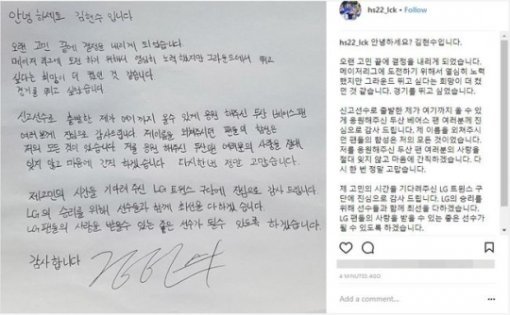 안녕하세요 김현수입니다
오랜 고민 끝에 결정을 내리게 되었습니다.
메이저리그에 도전 하기 위해서 열심히 노력했지만 그라운드에서 뛰고
싶다는 희망이 더 컸던 것 같습니다.
경기를 뛰고 싶었습니다
신고선수로 출발한 제가 여기까지 올수 있게 응원 해주신 두산 베어스팬
여러분께 진심으로 감사드립니다 제이름을 외쳐주시던 팬들의 함성은
저의 모든 것이 었습니다 저를 응원 해주신 두산팬 여러분의 사랑을 절대
잊지 않고 마음에 간직 하겠습니다 다시한번 정말 고맙습니다.
제고민의 시간을 기다려 주신 LG 트윈스 구단에 진심으로 감사 드립니다
LG의 승리를 위해 선수들과 함께 최선을 다하겠습니다.
LG팬들의 사랑을 받을수 있는 좋은 선수가 될수 있도록 하겠습니다.
감사합니다
hs22_lck • Follow
hs22_lck 안녕하세요? 김현수입니다.
오랜 고민 끝에 결정을 내리게 되었습니다.
메이저리그에 도전하기 위해서 열심히 노력
했지만 그라운드 뛰고 싶다는 희망이 더 컸던
것 같습니다. 경기를 뛰고 싶었습니다.
신고선수로 출발한 제가 여기까지 올 수 있
게 응원해주신 두산 베어스 팬 여러분께 진
심으로 감사 드립니다. 제 이름을 외쳐주시
던 팬들의 함성은 저의 모든 것이었습니다.
저를 응원해주신 두산 팬 여러분의 사랑을
절대 잊지 않고 마음에 간직하겠습니다. 다
시 한 번 정말 고맙습니다.
제 고민의 시간을 기다려주신 LG 트윈스 구
단에 진심으로 감사 드립니다. LG의 승리를
위해 선수들과 함께 최선을 다하겠습니다.
LG 팬들의 사랑을 받을 수 있는 좋은 선수가
될 수 있도록 하겠습니다.
4 MINUTES AGO
Add a comment...